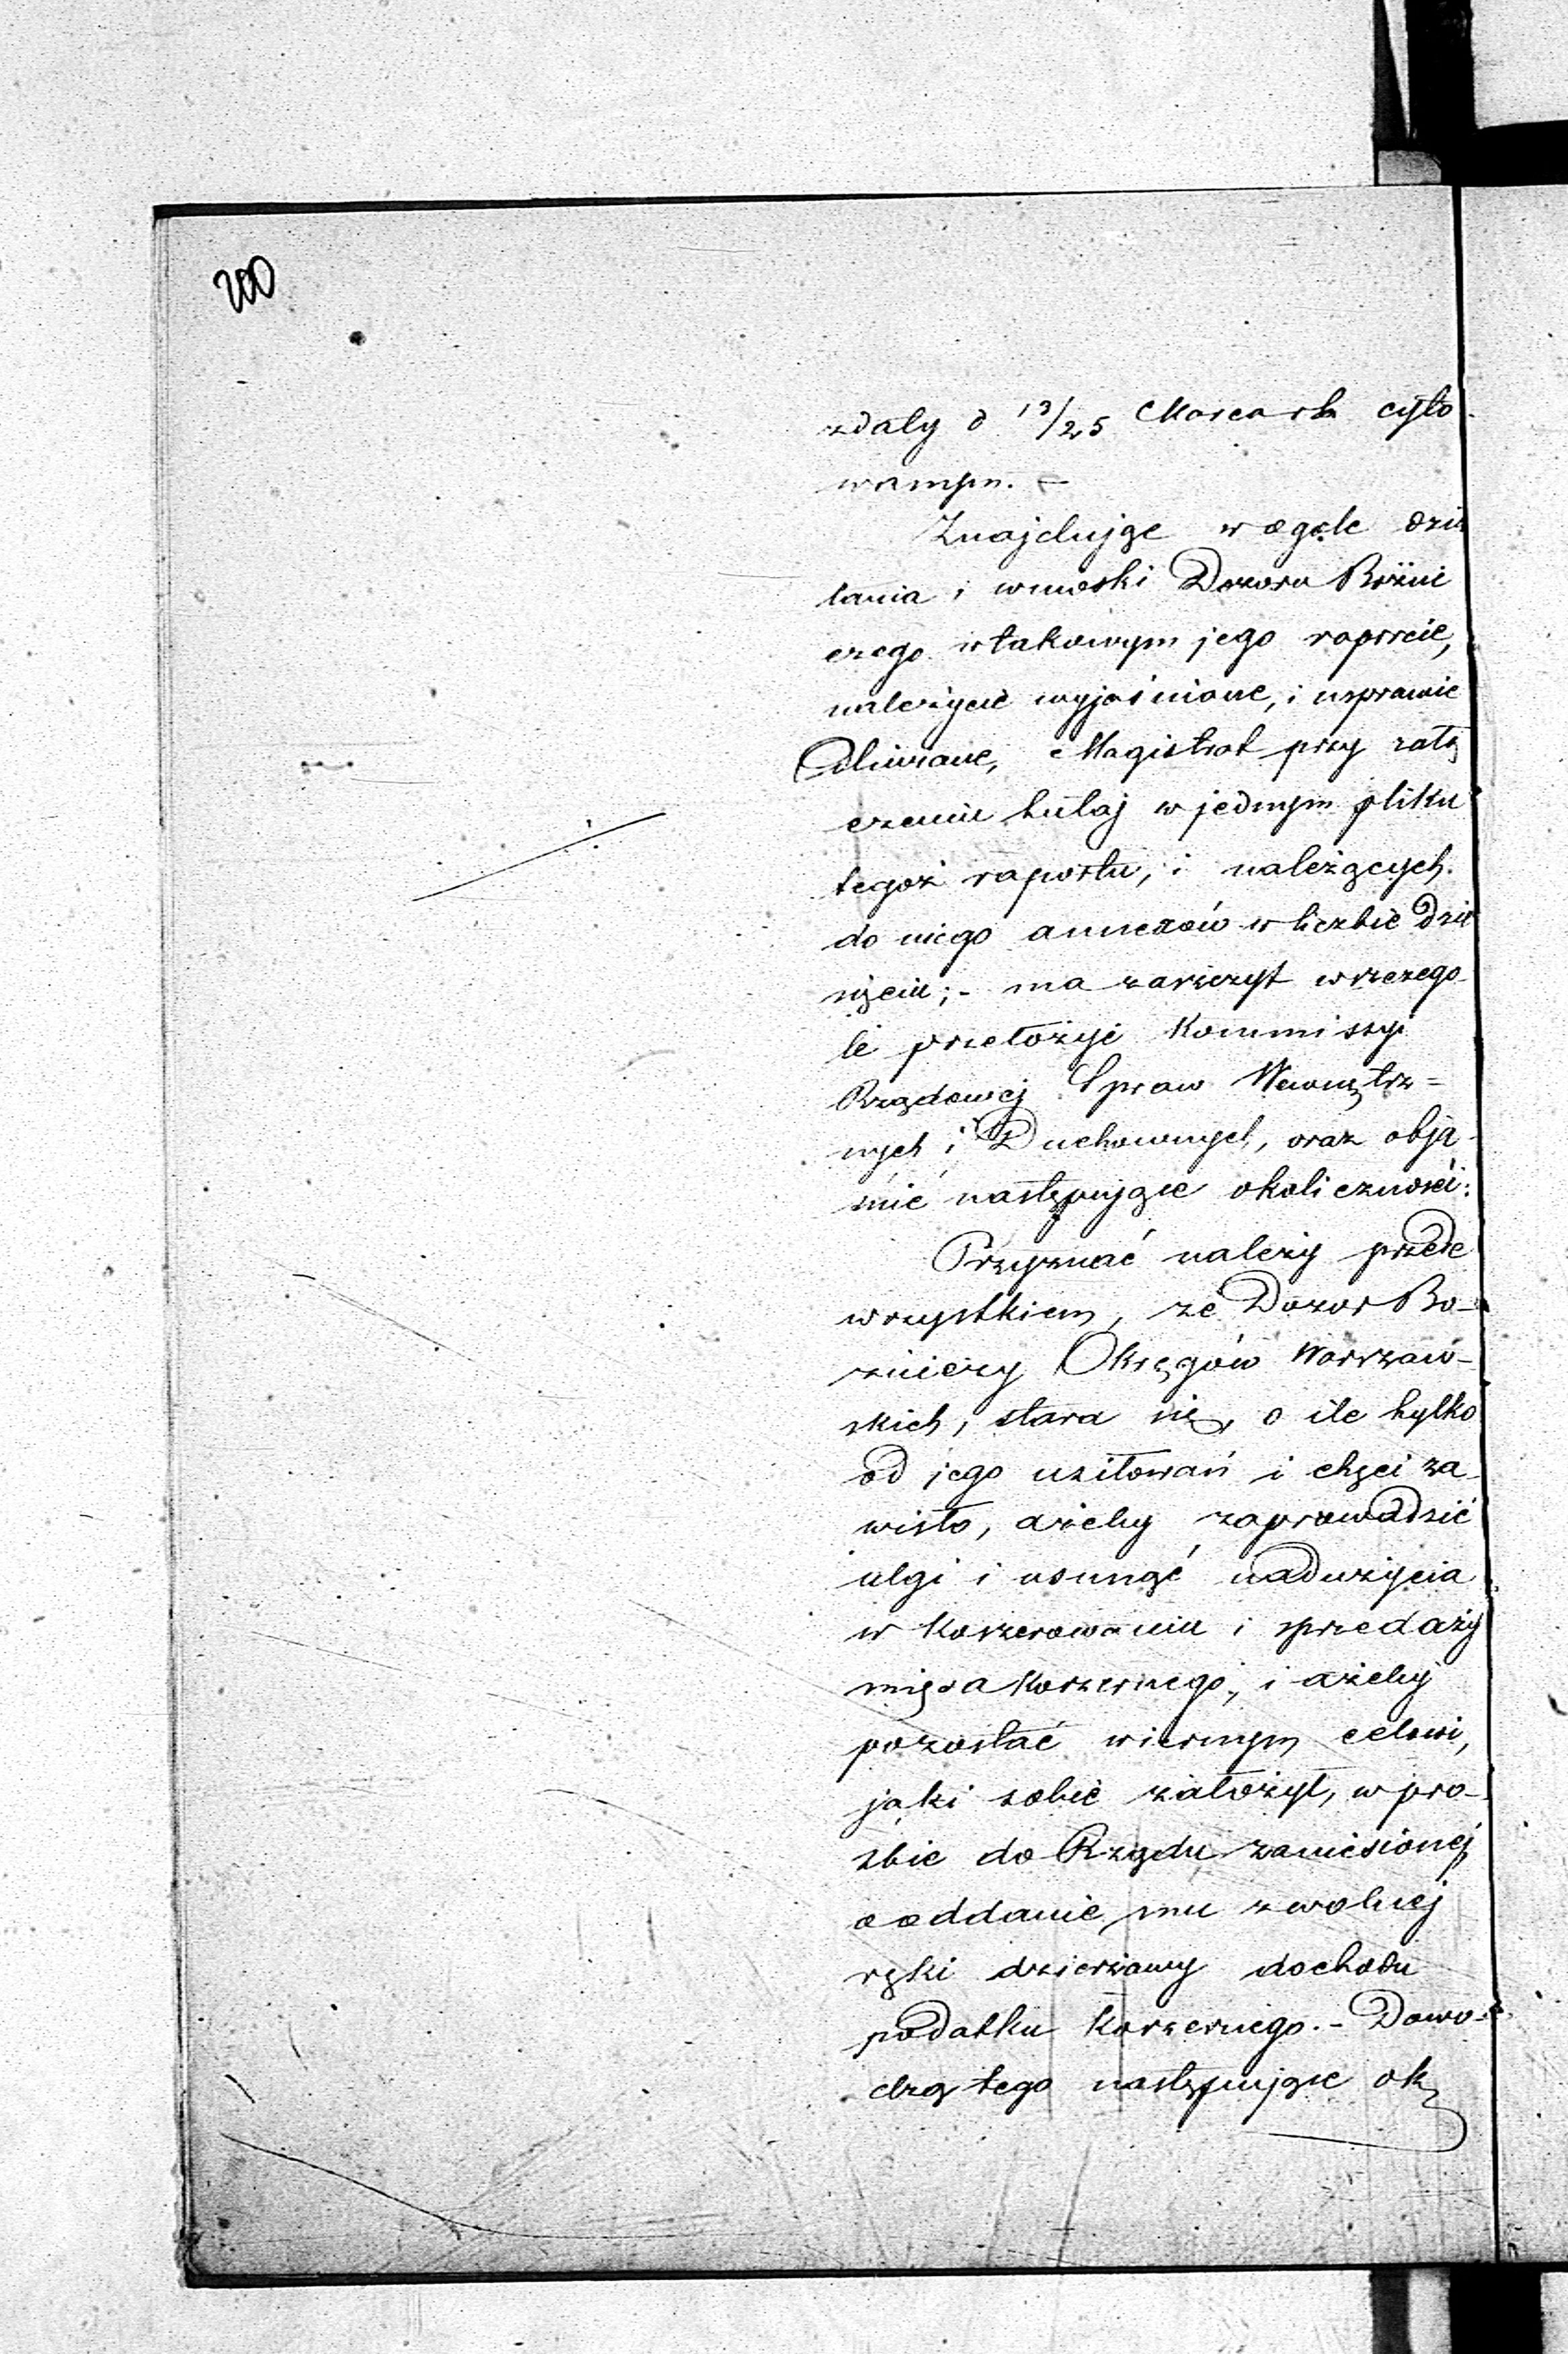 200
zdały d 13/25 Marca rb cyto-
wanym. –
Znajdując w ogóle dzia
łania i wnioski Dozoru Bóżni
czego w takowym jego raporcie,
należycie wyjaśnione, i usprawie
dliwione, Magistrat przy załą
czeniu tutaj w jednym pliku
tegoż raportu, i należących
do niego annexów w liczbie dzie
sięciu; - ma zaszczyt w szczego-
le przełożyć Kommissyi
Rządowej Spraw Wewnętrz=
nych i Duchownych, oraz obja-
śnić następujące okoliczności:
Przyznać należy przede
wszystkiem, że Dozor Bo-
żniczy Okręgów Warszaw-
skich, stara się, o ile tylko
od jego usiłowań i chęci za-
wisło, ażeby zaprowadzić
ulgi i usunąć nadużycia
w Koszerowaniu i sprzedaży
mięsa Koszernego, i ażeby
pozostać wiernym celowi,
jaki sobie założył, w pro-
śbie do Rządu zaniesionej
o oddanie mu z wolnej
ręki dzierżawy dochodu
podatku Koszernego. - Dowo-
dzą tego następujące ok